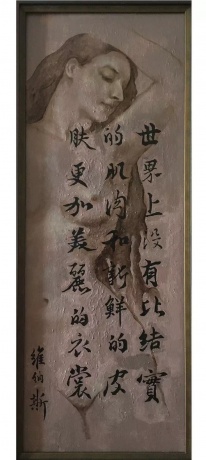 世界上没有比结實
的肌肉和新鮮的皮
膚更加美麗的衣裳
維伯斯